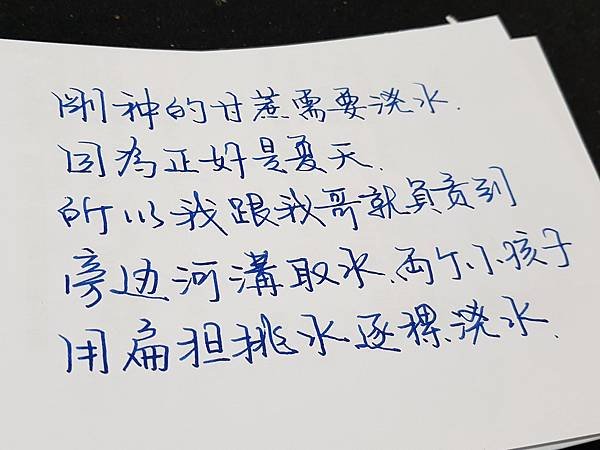 剛种的甘蔗需要澆水.
因為正好是夏天.
所以我跟我哥就負責到
旁边河溝取水、両个小孩子
用扁担挑水逐棵澆水.